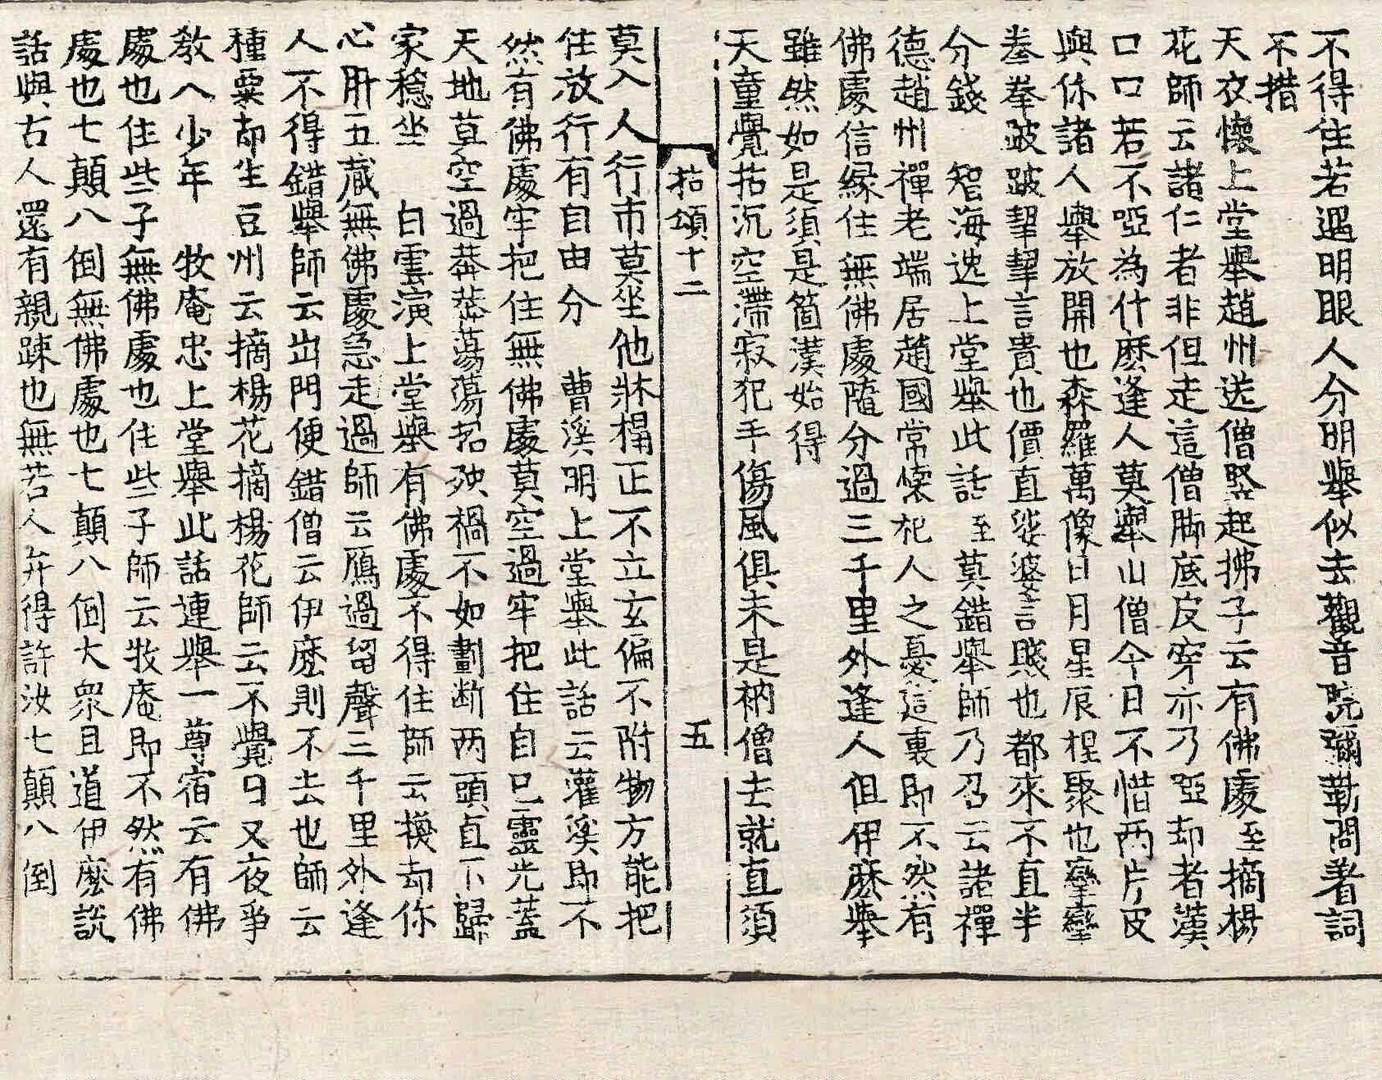 不得住若遇明眼人分明舉似去觀音院彌勒問著詞
不措
天衣懷上堂舉趙州送僧竪起拂子云有佛處至摘楊
花師云諸仁者非但走這僧脚底皮穿亦乃啞却者漢
口口若不啞為什麽逢人莫舉山僧今日不惜两片皮
與你諸人舉放開也森羅萬像日月星辰捏聚也孿孿
拳拳跛跛挈挈言貴也價直娑婆言賤也都來不直半
分錢 智海逸上堂舉此話至莫錯舉師乃召云諸禪
德趙州禪老端居趙國常懷杞人之憂這裏即不然有
佛處信緣住無佛處隨分過三千里外逢人但伊麽舉
雖然如是須是箇漢始得
天童覺拈沉空滯寂犯手傷風俱未是衲僧去就直須
拈頌十二 五
莫入人行市莫坐他牀榻正不立玄偏不附物方能把
住放行有自由分 曹溪明上堂舉此話云灌溪即不
然有佛處牢把住無佛處莫空過牢把住自己靈光蓋
天地莫空過莽莽蕩蕩招殃禍不如劃断两頭直下歸
家穩坐 白雲演上堂舉有佛處不得住師云換却你
心肝五藏無佛處急走過師云鴈過留聲三千里外逢
人不得錯舉師云出門便錯僧云伊麽則不去也師云
種粟却生豆州云摘楊花摘楊花師云不覺日又夜爭
教人少年 牧庵忠上堂舉此話連舉一尊宿云有佛
處也住些子無佛處也住些子師云牧庵即不然有佛
處也七顛八倒無佛處也七顛八倒大衆且道伊麽說
話與古人還有親踈也無若人弁得許汝七顛八倒